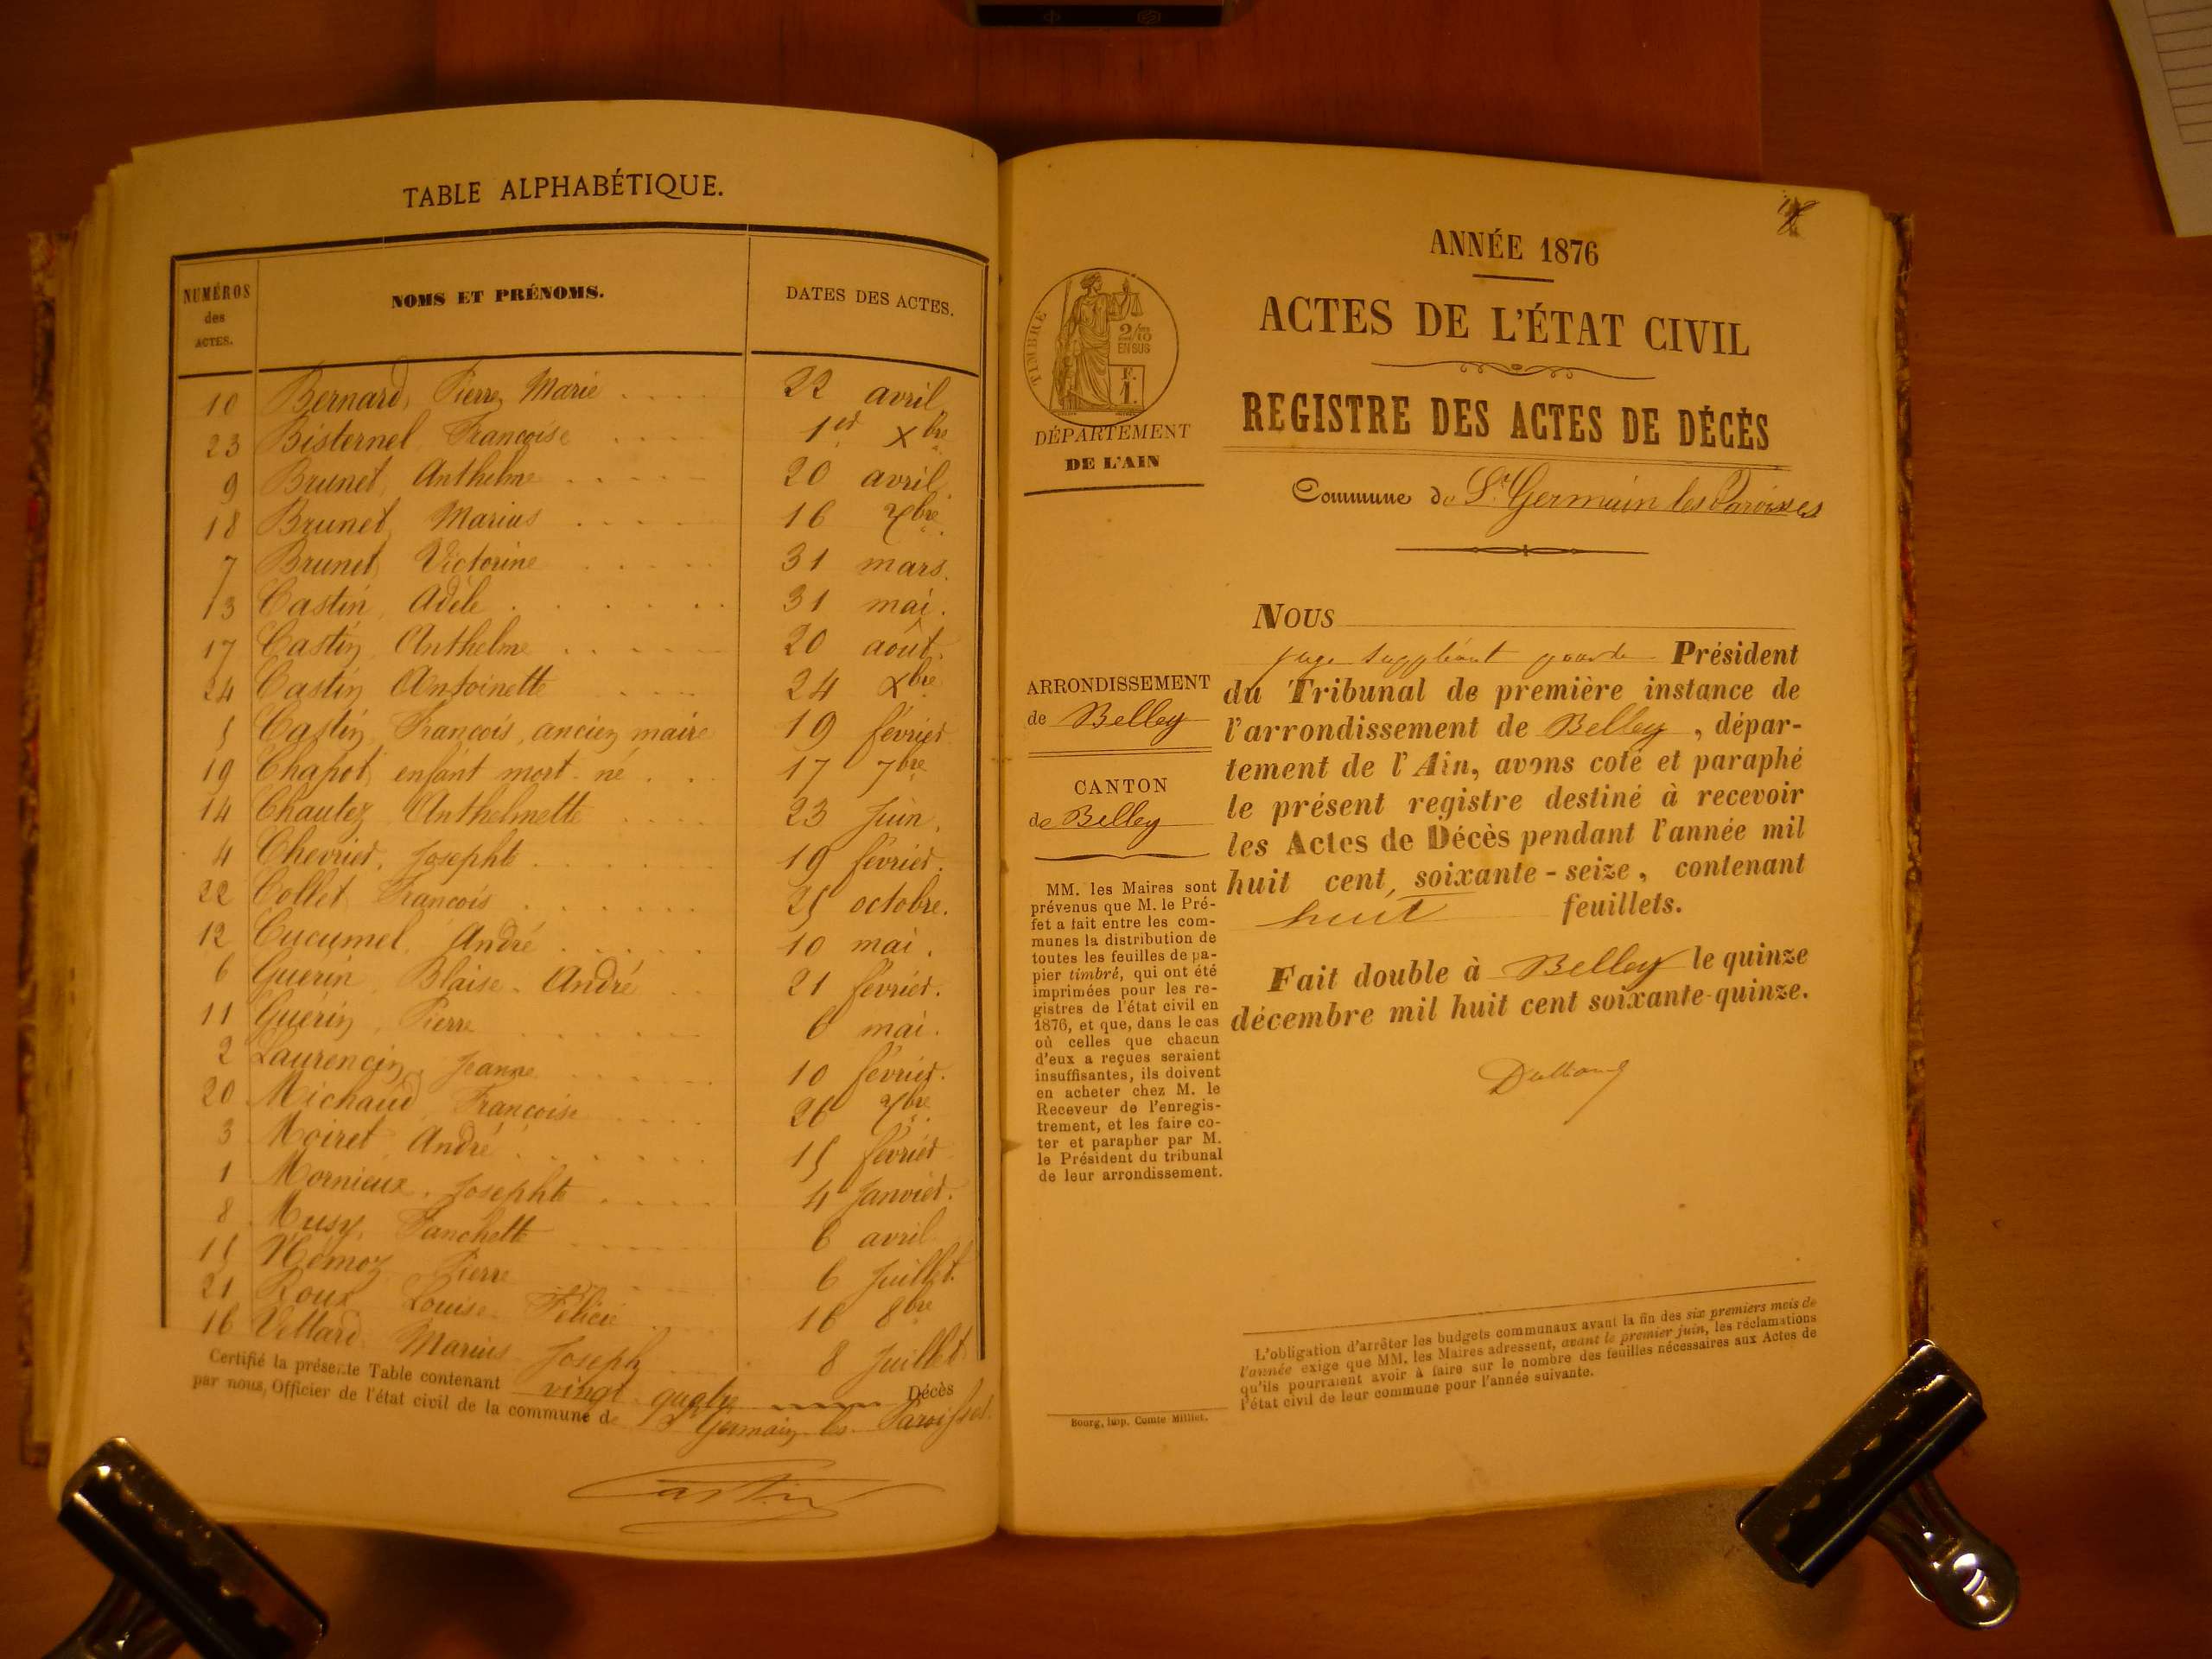 TABLE ALPHABÉTIQUE.
NUMÉROS des ACTES. NOMS ET PRÉNOMS. DATES DES ACTES.
10 Bernard, Pierre Marie .... 22 avril
23 Bisternel Françoise .... 1er Xbre
9 Brunet, Anthelme ..... 20 avril.
18 Brunet, Marius .... 16 7bre.
7 Brunet, Victorine ..... 31 mars.
13 Castin, Adèle ...... 31 mai.
17 Castin, Anthelme ..... 20 août.
24 Castin, Antoinette .... 24 Xbre
5 Castin, François, ancien maire 19 février
19 Chapot, enfant mort-né ... 17 7bre
14 Chautez Anthelmette .... 23 Juin.
4 Chevrier, Josephte ..... 19 février.
22 Collet, François ...... 25 octobre.
12 Cucumel, André ..... 10 mai.
6 Guerin, Blaise-André .. 21 février.
11 Guérin, Pierre ...... 6 mai.
2 Laurencin, Jeanne ..... 10 février.
20 Michaud, Françoise .... 26 7bre.
3 Moiret, André ...... 15 février
1 Mornieux, Josephte .... 4 Janvier.
8 Musy, Fanchette ..... 6 avril
15 Némoz Pierre ..... 6 Juillet.
21 Roux Louise-Félicie .. 16 8bre
16 Vellard Marius Joseph .... 8 Juillet
Certifié la présente Table contenant vingt-quatre Décès
par nous, Officier de l'état civil de la commune de St Germain les Paroisses.
Castin
ANNÉE 1876
TIMBRE
2/10
EN SUS
F.
1.
ACTES DE L'ÉTAT CIVIL
REGISTRE DES ACTES DE DÉCÈS
DÉPARTEMENT
DE L'AIN
Commune de St Germain les Paroisses
ARRONDISSEMENT
de Belley
CANTON
de Belley
MM. les Maires sont
prévenus que M. le Pré-
fet a fait entre les com-
munes la distribution de
toutes les feuilles de pa-
pier timbré, qui ont été
imprimées pour les re-
gistres de l'état civil en
1876, et que, dans le cas
où celles que chacun
d'eux a reçues seraient
insuffisantes, ils doivent
en acheter chez M. le
Receveur de l'enregis-
trement, et les faire co-
ter et parapher par M.
le Président du tribunal
de leur arrondissement.
NOUS
juge suppléant pour le Président
du Tribunal de première instance de
l'arrondissement de Belley, dépar-
tement de l'Ain, avons coté et paraphé
le présent registre destiné à recevoir
les Actes de Décès pendant l'année mil
huit cent soixante-seize, contenant
huit feuillets.
Fait double à Belley le quinze
décembre mil huit cent soixante-quinze.
L'obligation d'arrêter les budgets communaux avant la fin des six premiers mois de
l'année exige que MM. les Maires adressent, avant le premier juin, les réclamations
qu'ils pourraient avoir à faire sur le nombre des feuilles nécessaires aux Actes de
l'état civil de leur commune pour l'année suivante.
Bourg, imp. Comte Milliet.